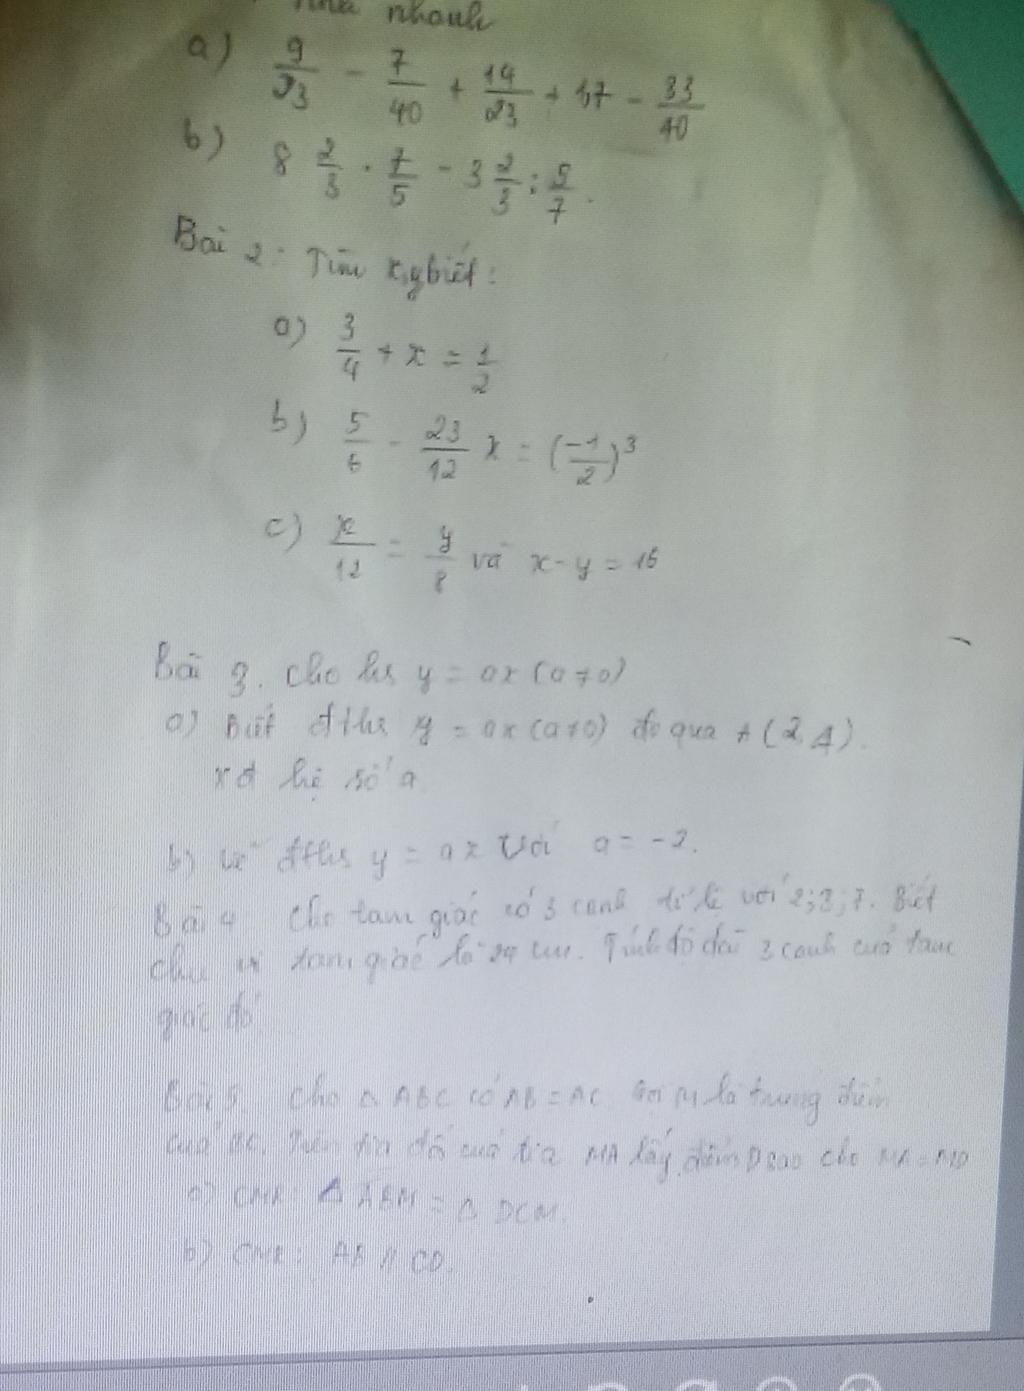 nhanh
a) 9/23 - 7/40 + 14/23 + 17 - 33/40
b) 8 2/3 . 7/5 - 3 2/3 : 5/7.
Bài 2: Tìm x,y biết:
a) 3/4 + x = 1/2
b) 5/6 - 23/12 x = (-1/2)^3
c) x/12 = y/8 và x-y = 16
Bài 3. Cho hs y = ax (a≠0)
a) Biết đths y = ax (a≠0) đi qua A(2,4).
xđ hệ số a
b) vẽ đths y = ax Với a = -2.
Bài 4 Cho tam giác có 3 cạnh tỉ lệ với 2;3;7. Biết
chu vi tam giác là 24 cm. Tính độ dài 3 cạnh của tam
giác đó
Bài 5. Cho △ ABC có AB = AC Gọi M là trung điểm
của BC. Trên tia đối của tia MA lấy điểm D sao cho MA = MD
a) CMR: △ ABM = △ DCM.
b) CMR: AB // CD.